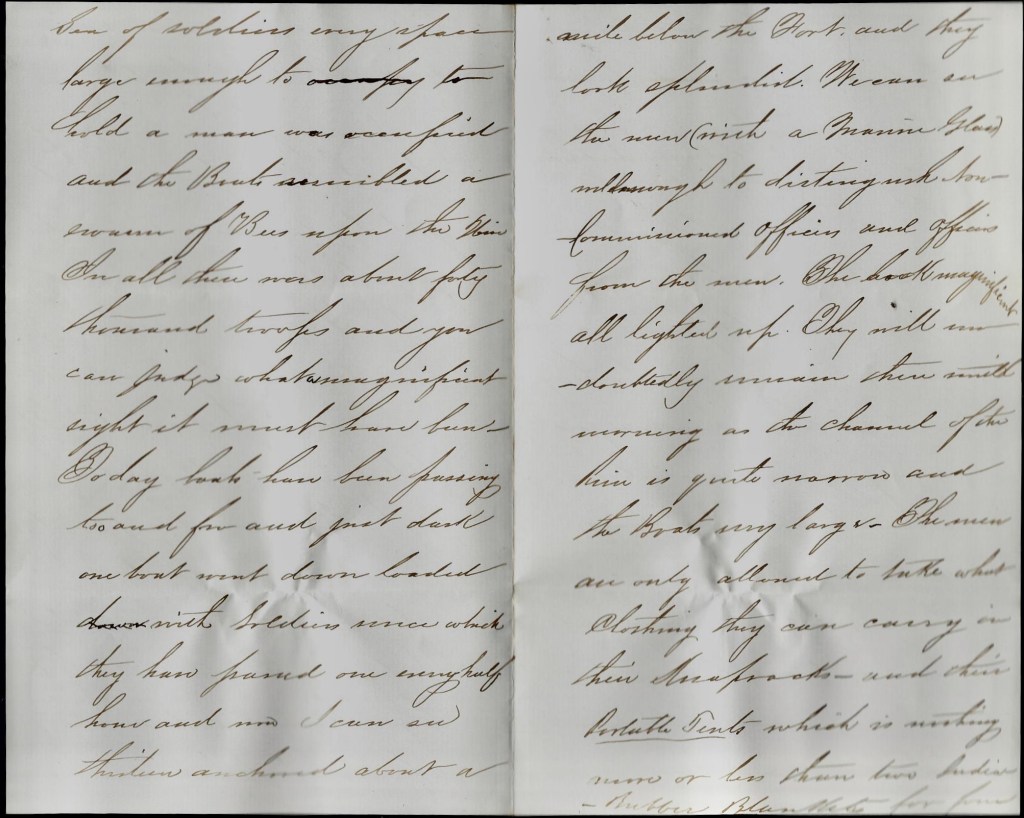 Sea of soldiers every space
large enough to occupy to
hold a man was occupied
and the Boats resembled a
swarm of Bees upon the Hive
In all there was about forty
thousand troops and you
can judge what a magnificent
sight it must have been—
To day boats have been passing
too and fro and just dark
one boat went down loaded
down with Soldiers since which
they have passed one every half
hour and now I can see
thirteen anchored about a
mile below the Fort. and they
look splendid. We can see
the men (with a Marine Glass)
well enough to distinguish Non—
Commissioned Officers and Officers
from the men. The look magnificent
all lighted up. They will un
—doubtedly remain there until
morning as the channel of the
River is quite narrow and
the Boats very large— The men
are only allowed to take what
Clothing they can carry in
their Knapsacks— and their
Portable Tents which is nothing
more or less than two India
—Rubber Blankets for four